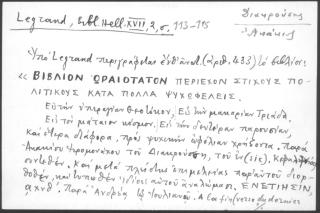 Legrand, Bibl. Hell. XVII, 2, σ. 113-115
Διακρούσης
Ἀκάκιος
Ὑπὸ Legrand περιγράφεται ἐνθ' ἀνωτ. (ἀριθ. 433) τὸ βιβλίον:
« ΒΙΒΛΙΟΝ ΩΡΑΙΟΤΑΤΟΝ ΠΕΡΙΕΧΟΝ ΣΤΙΧΟΥΣ ΠΟ-
ΛΙΤΙΚΟΥΣ ΚΑΤΑ ΠΟΛΛΑ ΨΥΧΩΦΕΛΕΙΣ.
Εἰς τὴν ὑπεραγίαν Θεοτόκον, Εἰς τὴν μακαρίαν Τριάδα,
Εἰς τὸν μάταιον κόσμον, Εἰς τὴν δευτέραν παρουσίαν,
καὶ ἕτερα διάφορα, πρὸς ψυχικὴν ὠφέλειαν χρήσιμα, παρὰ
Ἀκακίου Ἱερομονάχου τοῦ Διακρούση, τοῦ
συντεθέν, καὶ μετὰ πλείστης ἐπιμελείας παρ' αὐτοῦ διορ-
θωθέν, καὶ τυπωθὲν ἰδίοις αὐτοῦ ἀναλώμασι, ΕΝΕΤΙΗΣΙΝ,
αχξθ΄, Παρὰ Ἀνδρέᾳ τῷ Ἰουλιανῷ.